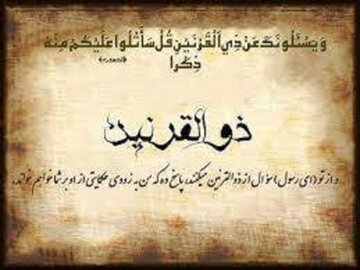 وَيَسْـَٔلُونَكَ عَنْ ذِي الْقَرْنَيْنِ قُلْ سَأَتْلُوا عَلَيْكُمْ مِنْهُ
ذِكْرًا
ذو القرنین
و از تو (ای رسول) سؤال از ذوالقرنین میکنند، پاسخ ده که من به زودی حکایتی از او بر شما خواهم خواند.